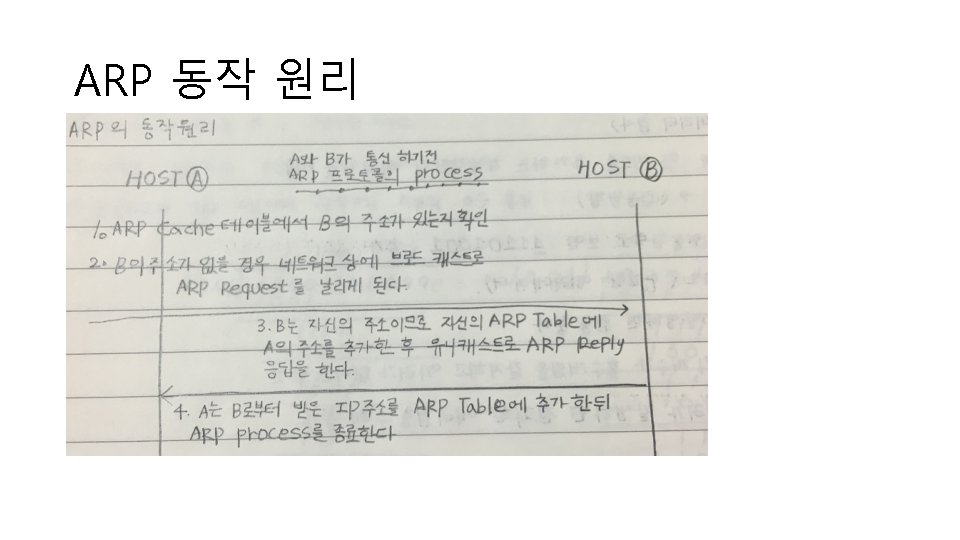 ARP 동작 원리
ARP의 동작원리
A와 B가 통신 하기전
HOST Ⓐ
ARP 프로토콜의 process
HOST Ⓑ
1. ARP Cache 테이블에서 B의 주소가 있는지 확인
2. B의 주소가 없을 경우 네트워크 상에 브로드 캐스트로
ARP Request를 날리게 된다.
3. B는 자신의 주소이므로 자신의 ARP Table에
A의 주소를 추가한 후 유니캐스트로 ARP Reply
응답을 한다.
4. A는 B로부터 받은 IP주소를 ARP Table에 추가 한뒤
ARP process를 종료한다